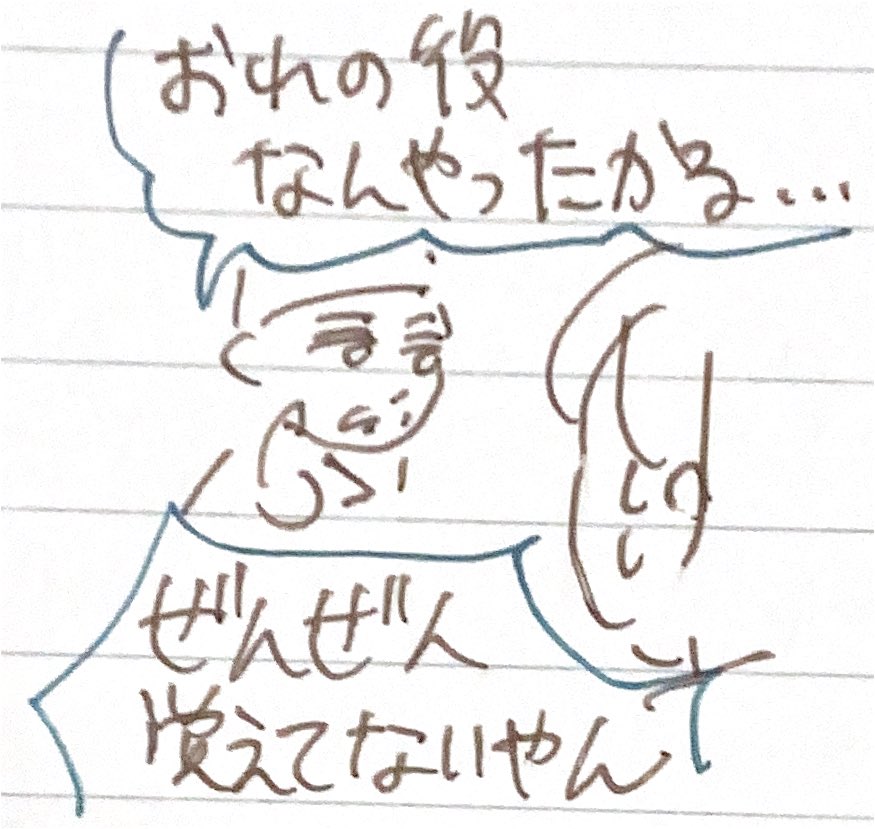 おれの役
なんやったかな…
ぜんぜん
覚えてないやん